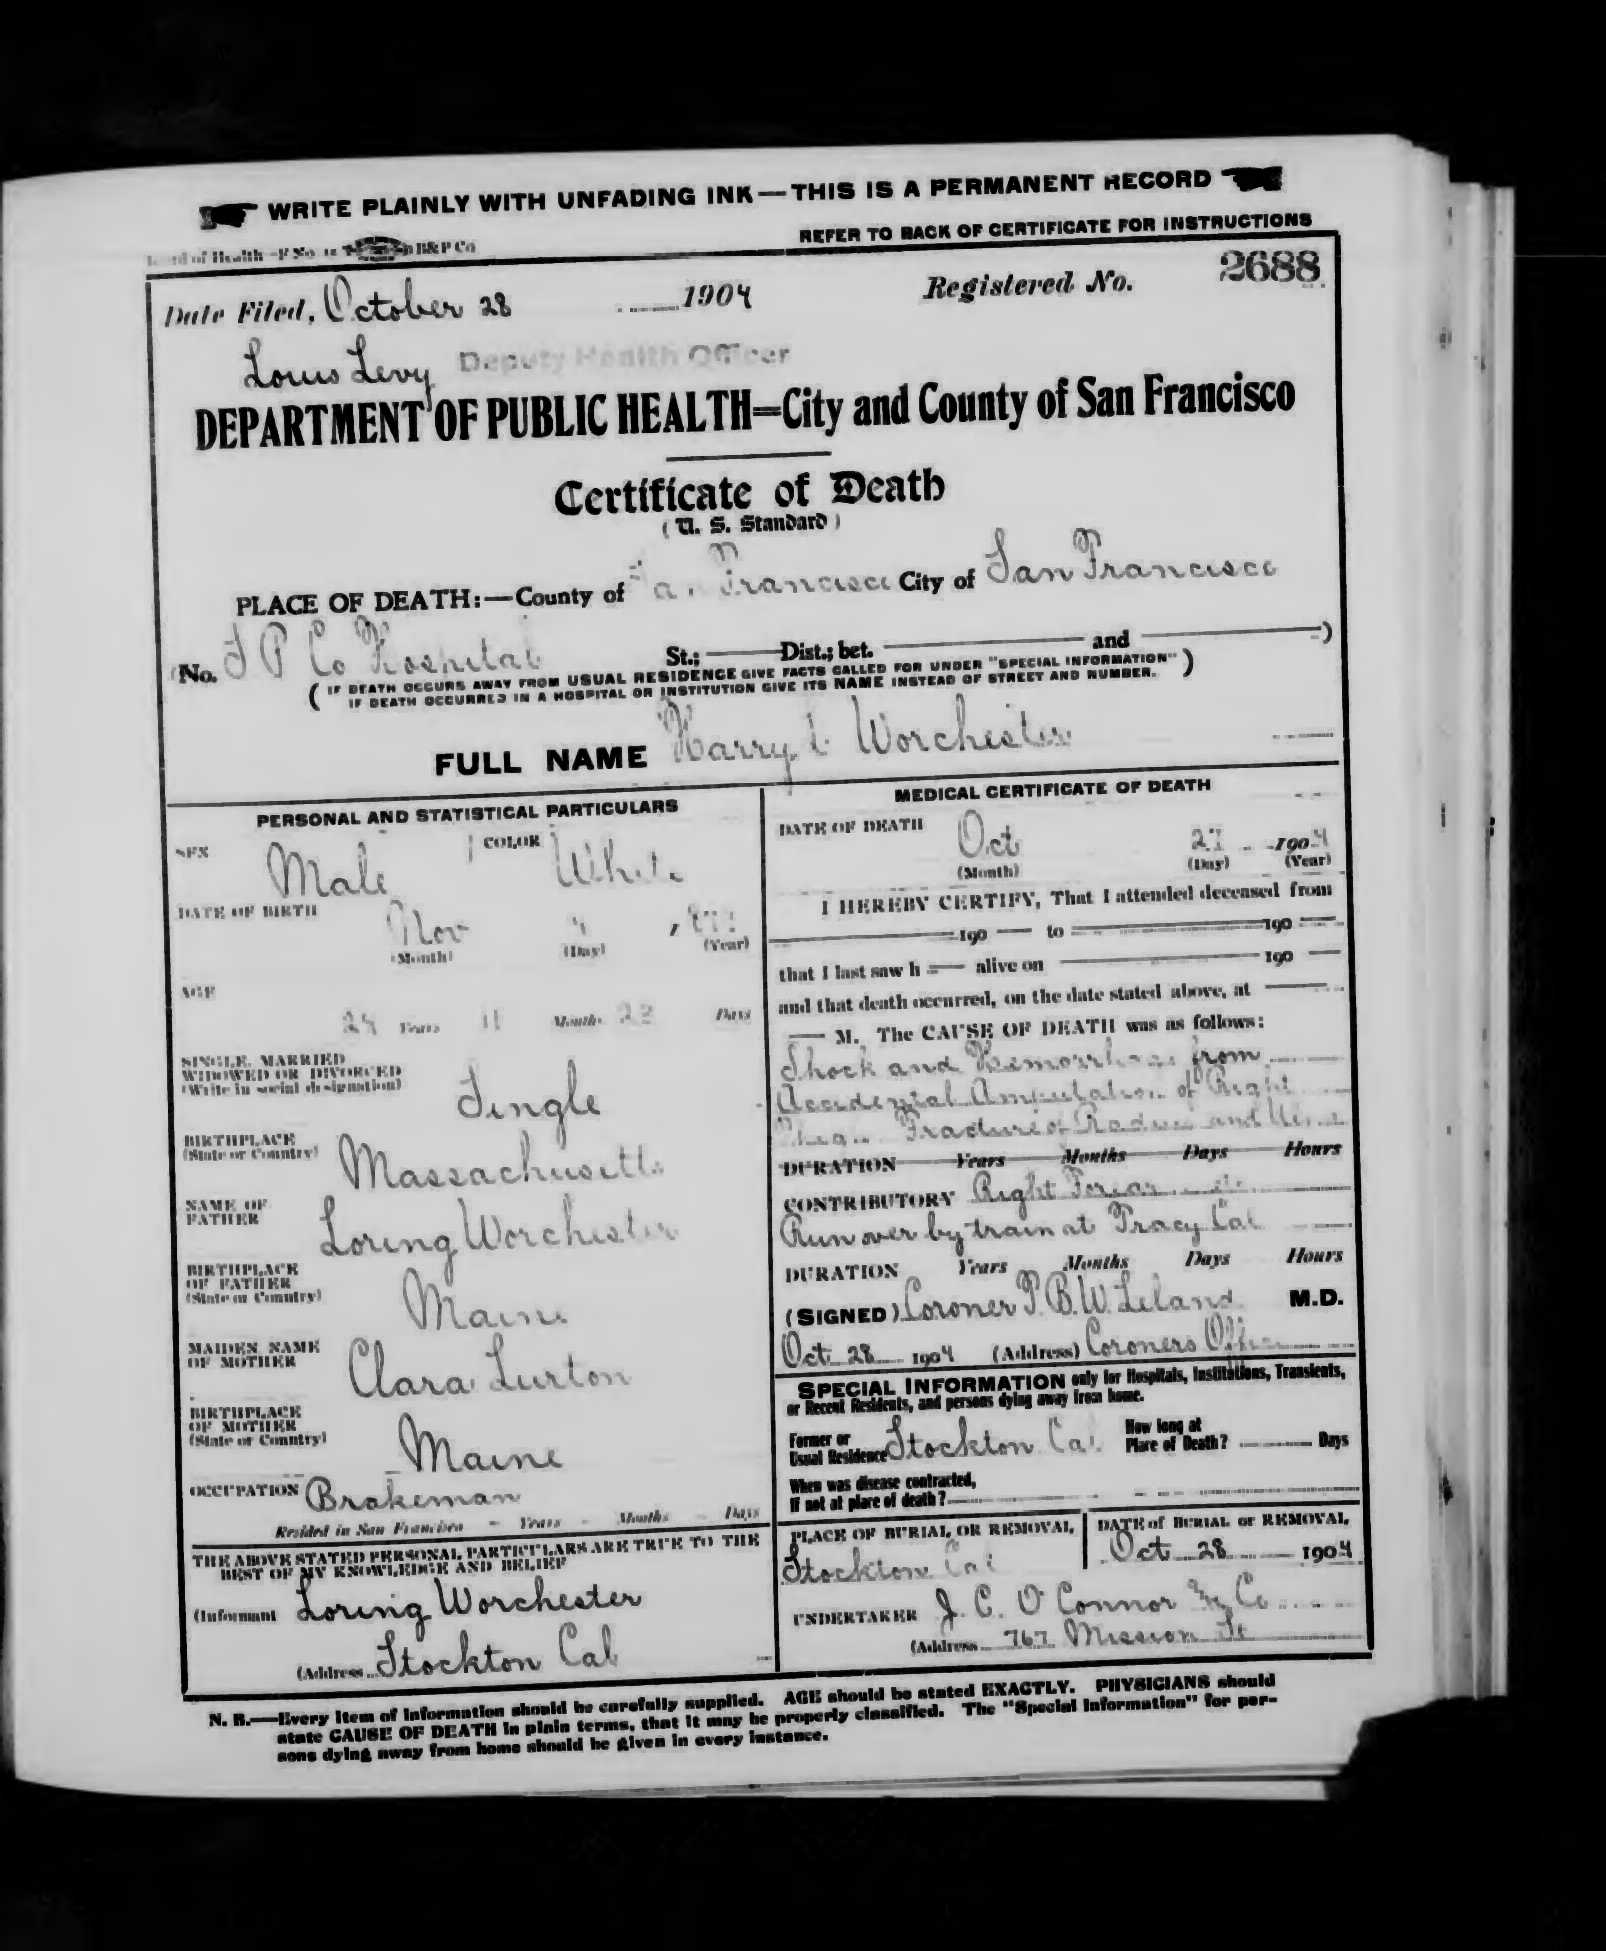 WRITE PLAINLY WITH UNFADING INK — THIS IS A PERMANENT RECORD
Board of Health—F No. B&P Co
REFER TO BACK OF CERTIFICATE FOR INSTRUCTIONS
Date Filed, October 28 1904 Registered No. 2688
Louis Levy Deputy Health Officer
DEPARTMENT OF PUBLIC HEALTH=City and County of San Francisco
Certificate of Death
(U. S. Standard)
PLACE OF DEATH:—County of San Francisco City of San Francisco
(No. S P Co Hospital St.; Dist.; bet. and )
( IF DEATH OCCURS AWAY FROM USUAL RESIDENCE GIVE FACTS CALLED FOR UNDER "SPECIAL INFORMATION" )
IF DEATH OCCURRED IN A HOSPITAL OR INSTITUTION GIVE ITS NAME INSTEAD OF STREET AND NUMBER.
FULL NAME Harry Worchester
PERSONAL AND STATISTICAL PARTICULARS
SEX Male COLOR White
DATE OF BIRTH Nov
(Month) (Day) (Year)
AGE
Years 11 Months 22 Days
SINGLE, MARRIED
WIDOWED OR DIVORCED
(Write in social designation) Single
BIRTHPLACE
(State or Country) Massachusetts
NAME OF
FATHER Loring Worchester
BIRTHPLACE
OF FATHER
(State or Country) Maine
MAIDEN NAME
OF MOTHER Clara Lurton
BIRTHPLACE
OF MOTHER
(State or Country) Maine
OCCUPATION Brakeman
Resided in San Francisco - Years - Months - Days
THE ABOVE STATED PERSONAL PARTICULARS ARE TRUE TO THE
BEST OF MY KNOWLEDGE AND BELIEF
(Informant Loring Worchester
(Address Stockton Cal
MEDICAL CERTIFICATE OF DEATH
DATE OF DEATH Oct 27 1904
(Month) (Day) (Year)
I HEREBY CERTIFY, That I attended deceased from
190 to 190
that I last saw h alive on 190
and that death occurred, on the date stated above, at
M. The CAUSE OF DEATH was as follows:
Shock and Hemorrhage from
Accidental Amputation of Right
Fracture of Radius and Ulna
DURATION Years Months Days Hours
CONTRIBUTORY Right Forearm
Run over by train at Tracy Cal
DURATION Years Months Days Hours
(SIGNED) Coroner T. B. W. Leland M.D.
Oct 28 1904 (Address) Coroners Office
SPECIAL INFORMATION only for Hospitals, Institutions, Transients,
or Recent Residents, and persons dying away from home.
Former or
Usual Residence Stockton Cal
How long at
Place of Death? Days
When was disease contracted,
If not at place of death?
PLACE OF BURIAL OR REMOVAL DATE of BURIAL or REMOVAL
Stockton Cal Oct 28 1904
UNDERTAKER J. C. O'Connor & Co
(Address 767 Mission St
N. B.—Every item of information should be carefully supplied. AGE should be stated EXACTLY. PHYSICIANS should
state CAUSE OF DEATH in plain terms, that it may be properly classified. The "Special Information" for per-
sons dying away from home should be given in every instance.